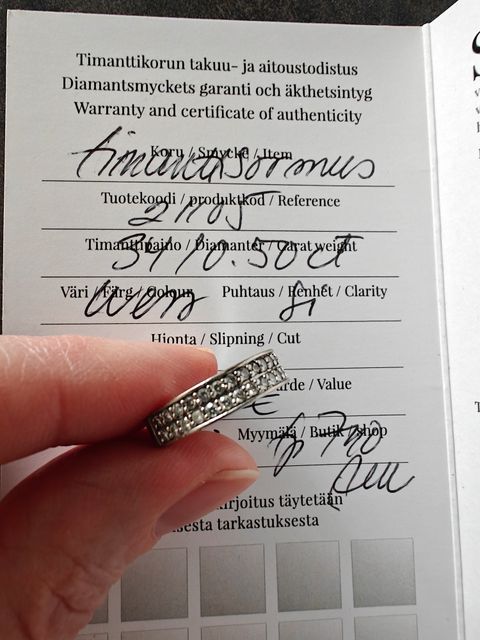 Timanttikorun takuu- ja aitoustodistus
Diamantsmyckets garanti och äkthetsintyg
Warranty and certificate of authenticity
Koru / Smycke / Item
timanttisormus
Tuotekoodi / produktkod / Reference
Timanttipaino / Diamanter / Carat weight
34/0.50ct
Väri / Färg / Colour Puhtaus / Renhet / Clarity
Si
Hionta / Slipning / Cut
/ Value
€
Myymälä / Butik / shop
täytetään
tarkastuksesta